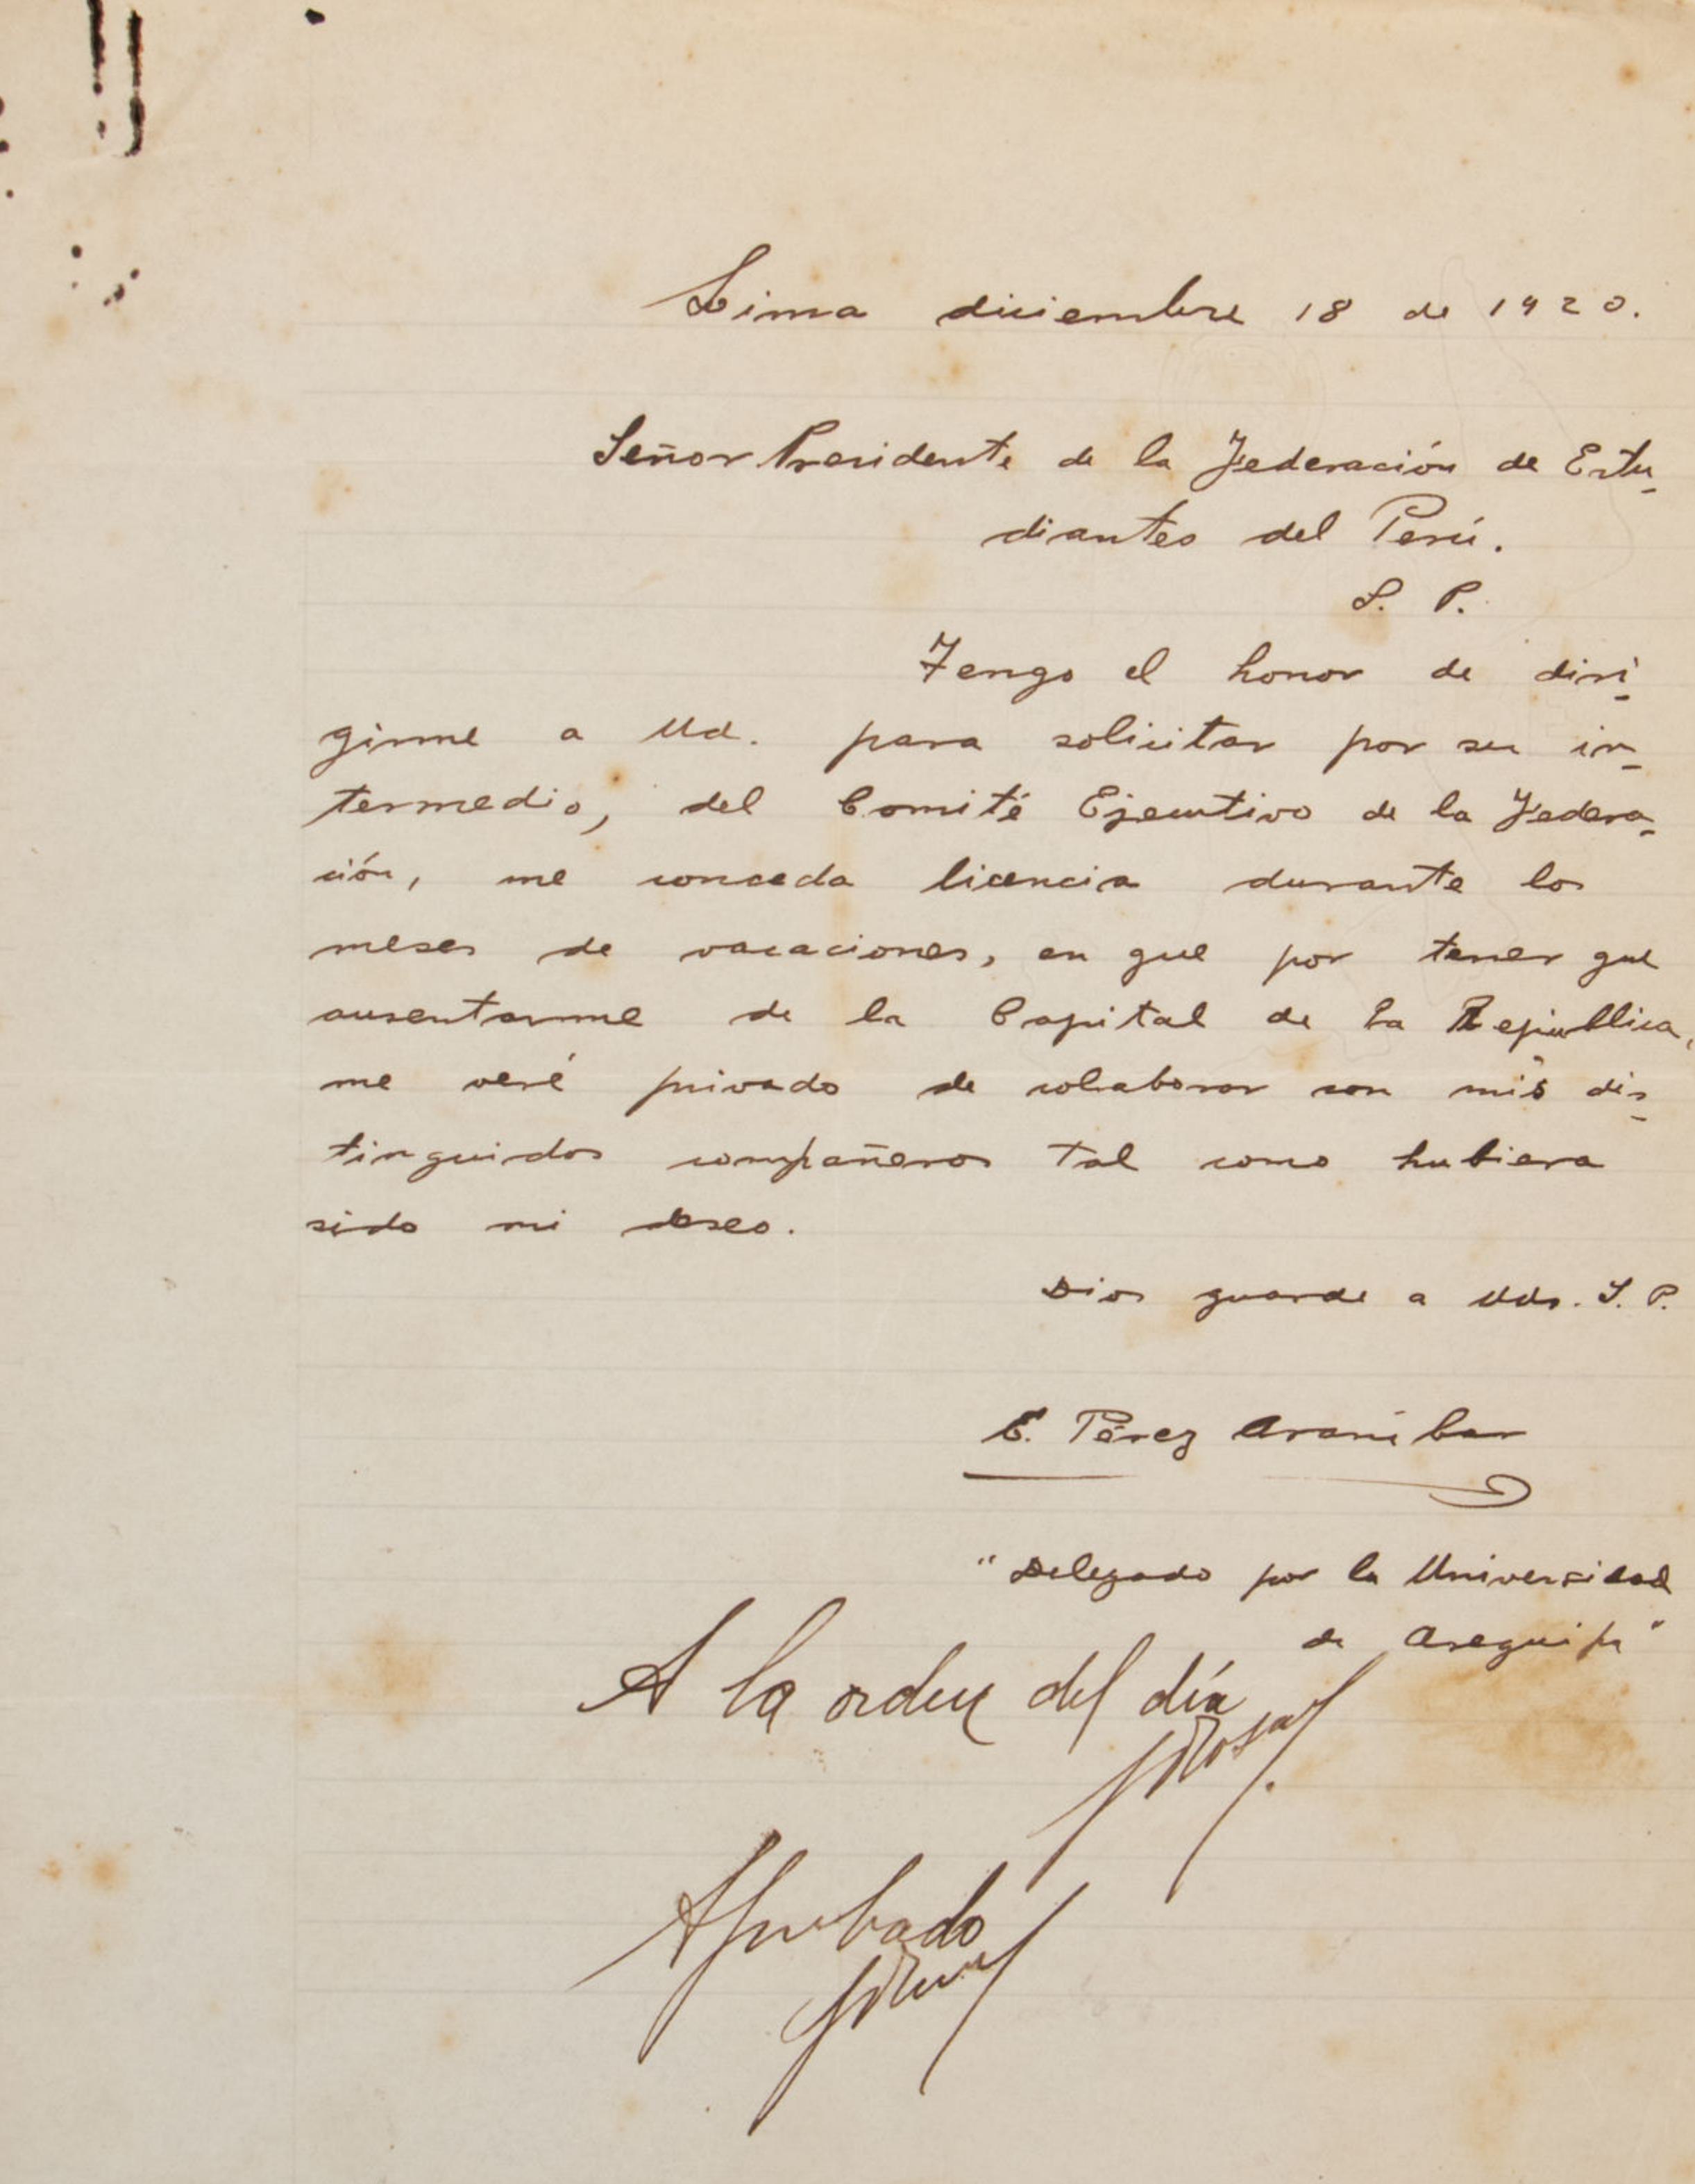 Lima diciembre 18 de 1920.
Señor Presidente de la Federación de Estu-
diantes del Perú.
S. P.
Tengo el honor de diri-
girme a Ud. para solicitar por su in-
termedio, del Comité Ejecutivo de la Federa-
ción, me conceda licencia durante los
meses de vacaciones, en que por tener que
ausentarme de la Capital de la República,
me veré privado de colaborar con mis dis-
tinguidos compañeros tal como hubiera
sido mi deseo.
Dios guarde a Uds. S. P.
E. Pérez Araníbar
"Delegado por la Universidad
de Arequipa"
A la orden del día
Aprobado